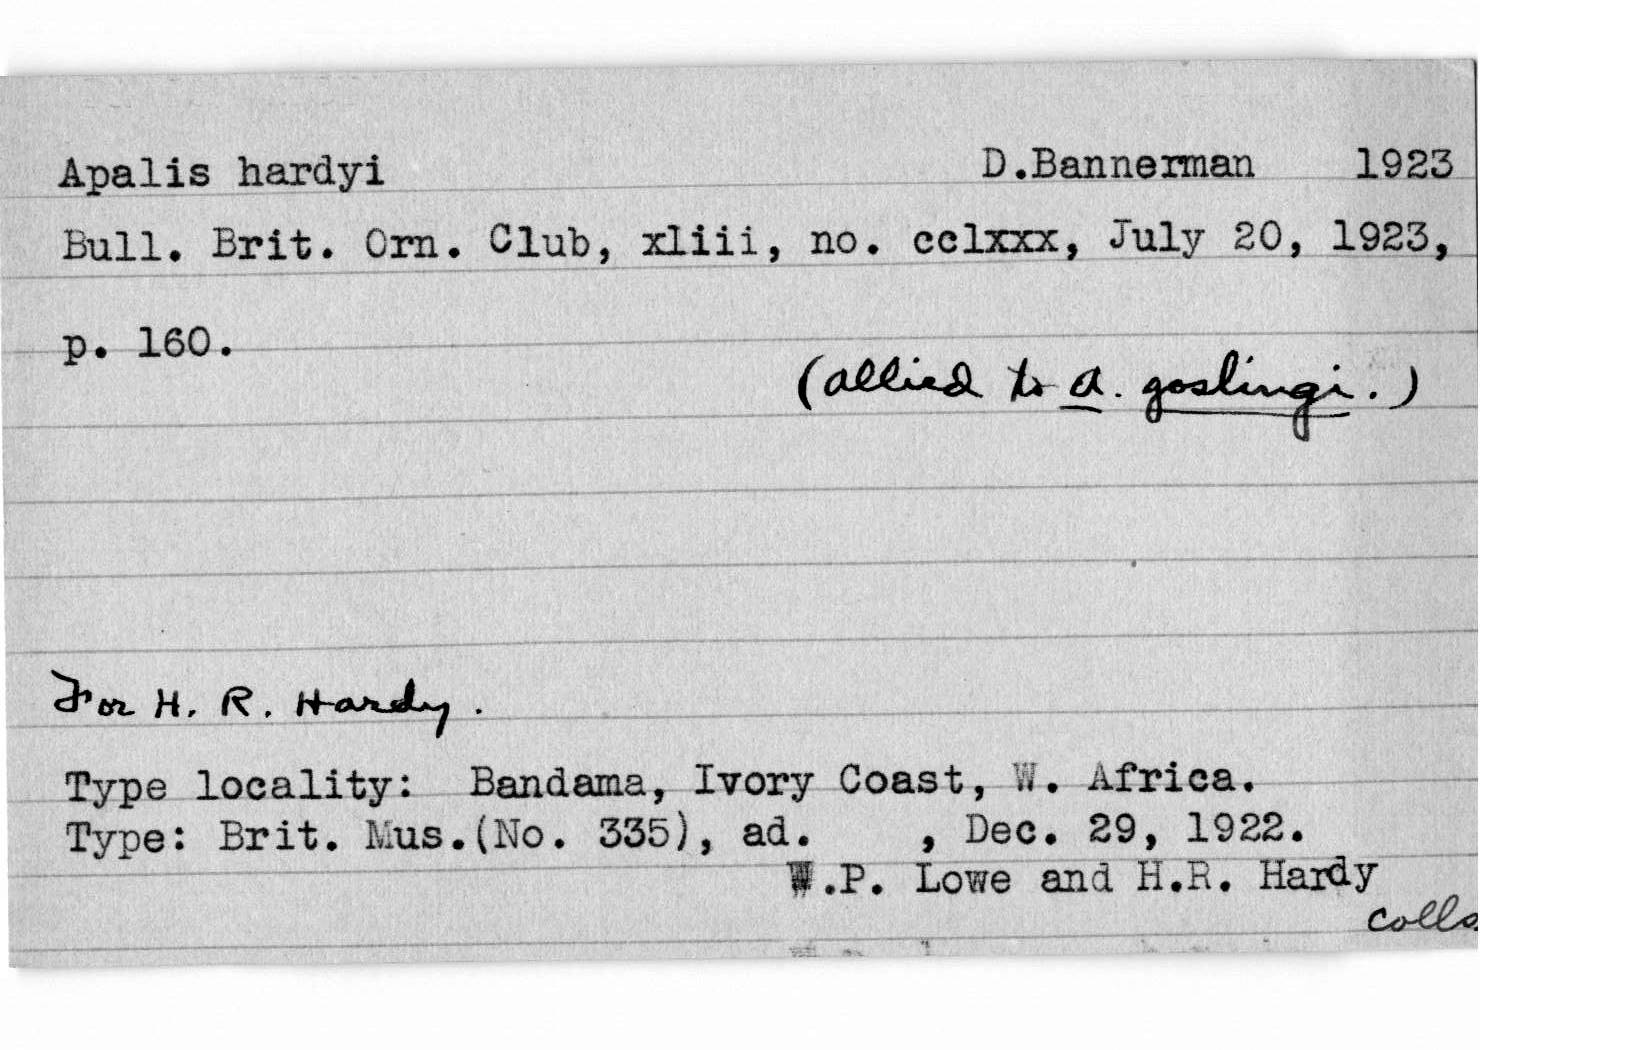 Apalis hardyi D.Bannerman 1923
Bull. Brit. Orn. Club, xliii, no. cclxxx, July 20, 1923,
p. 160.
(allied to a. goslingi.)
For H. R. Hardy.
Type locality: Bandama, Ivory Coast, W. Africa.
Type: Brit. Mus.(No. 335), ad. , Dec. 29, 1922.
W.P. Lowe and H.R. Hardy
colls